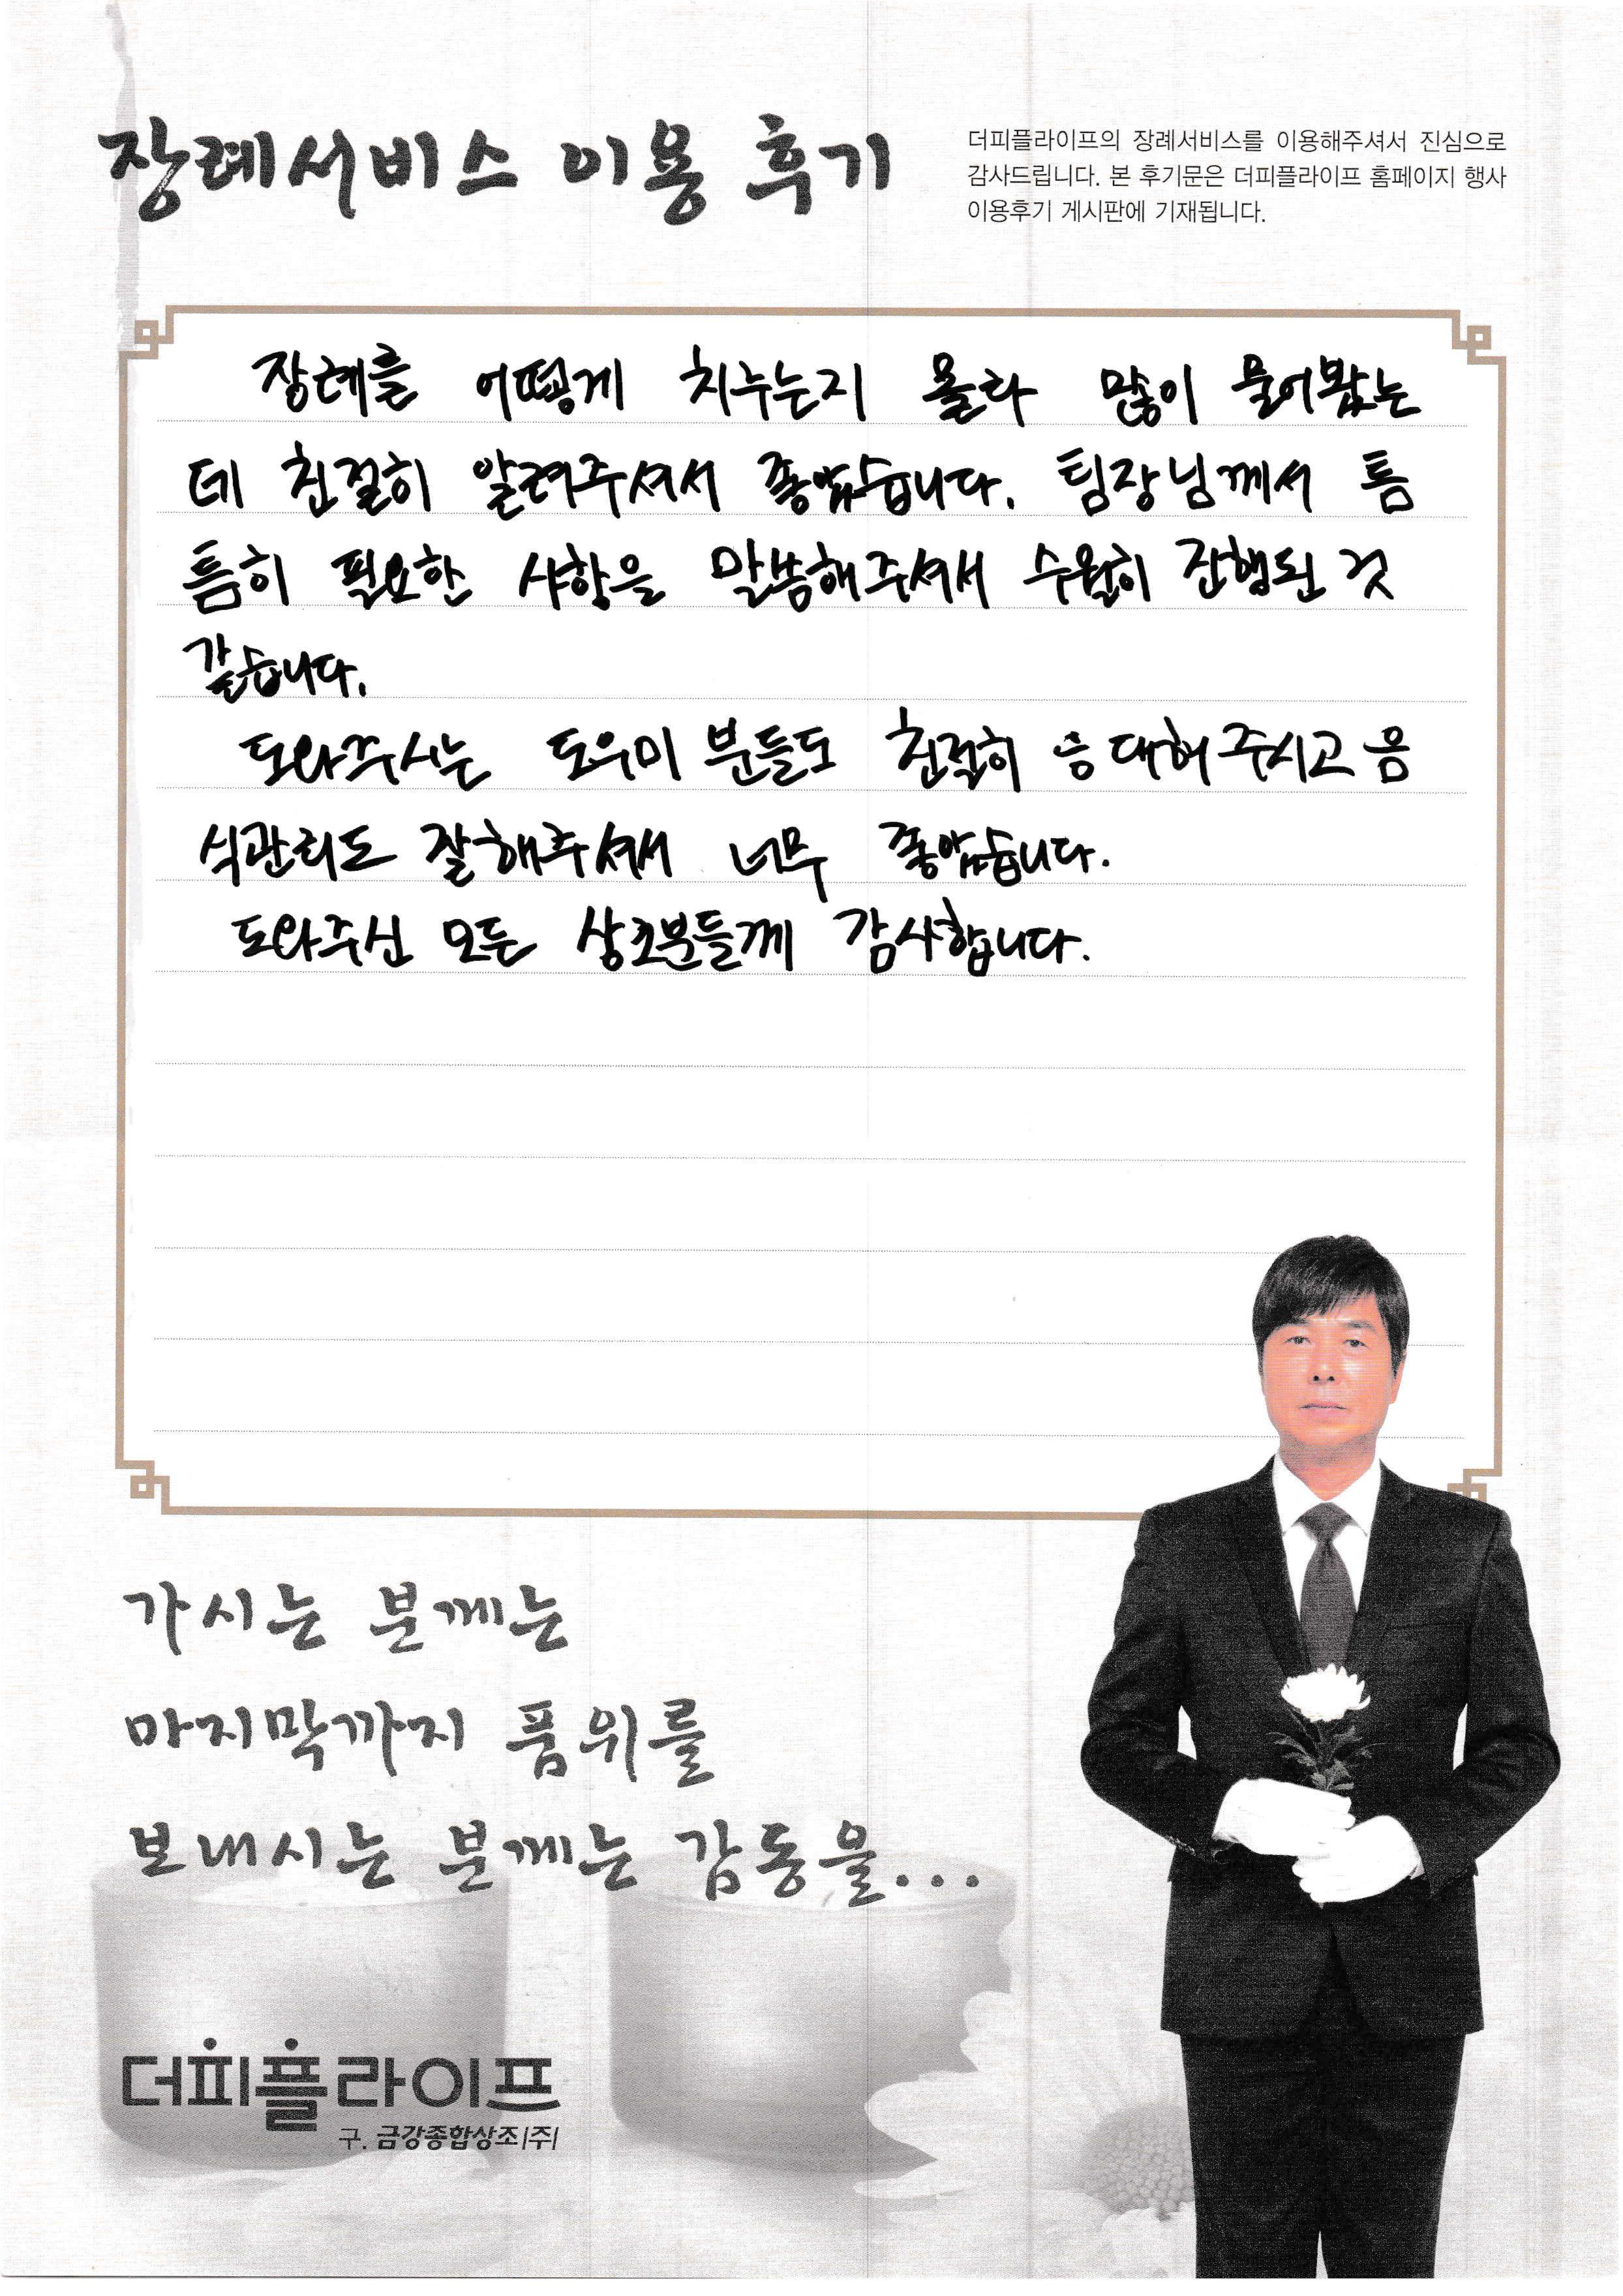 장례서비스 이용 후기
더피플라이프의 장례서비스를 이용해주셔서 진심으로
감사드립니다. 본 후기문은 더피플라이프 홈페이지 행사
이용후기 게시판에 기재됩니다.
장례를 어떻게 치루는지 몰라 많이 물어봤는
데 친절히 알려주셔서 좋았습니다. 팀장님께서 틈
틈히 필요한 사항을 말씀해주셔서 수월히 진행된 것
같습니다.
도와주시는 도우미 분들도 친절히 응대해주시고 음
식관리도 잘해주셔서 너무 좋았습니다.
도와주신 모든 상조분들께 감사합니다.
가시는 분께는
마지막까지 품위를
보내시는 분께는 감동을...
더피플라이프
구. 금강종합상조|주|